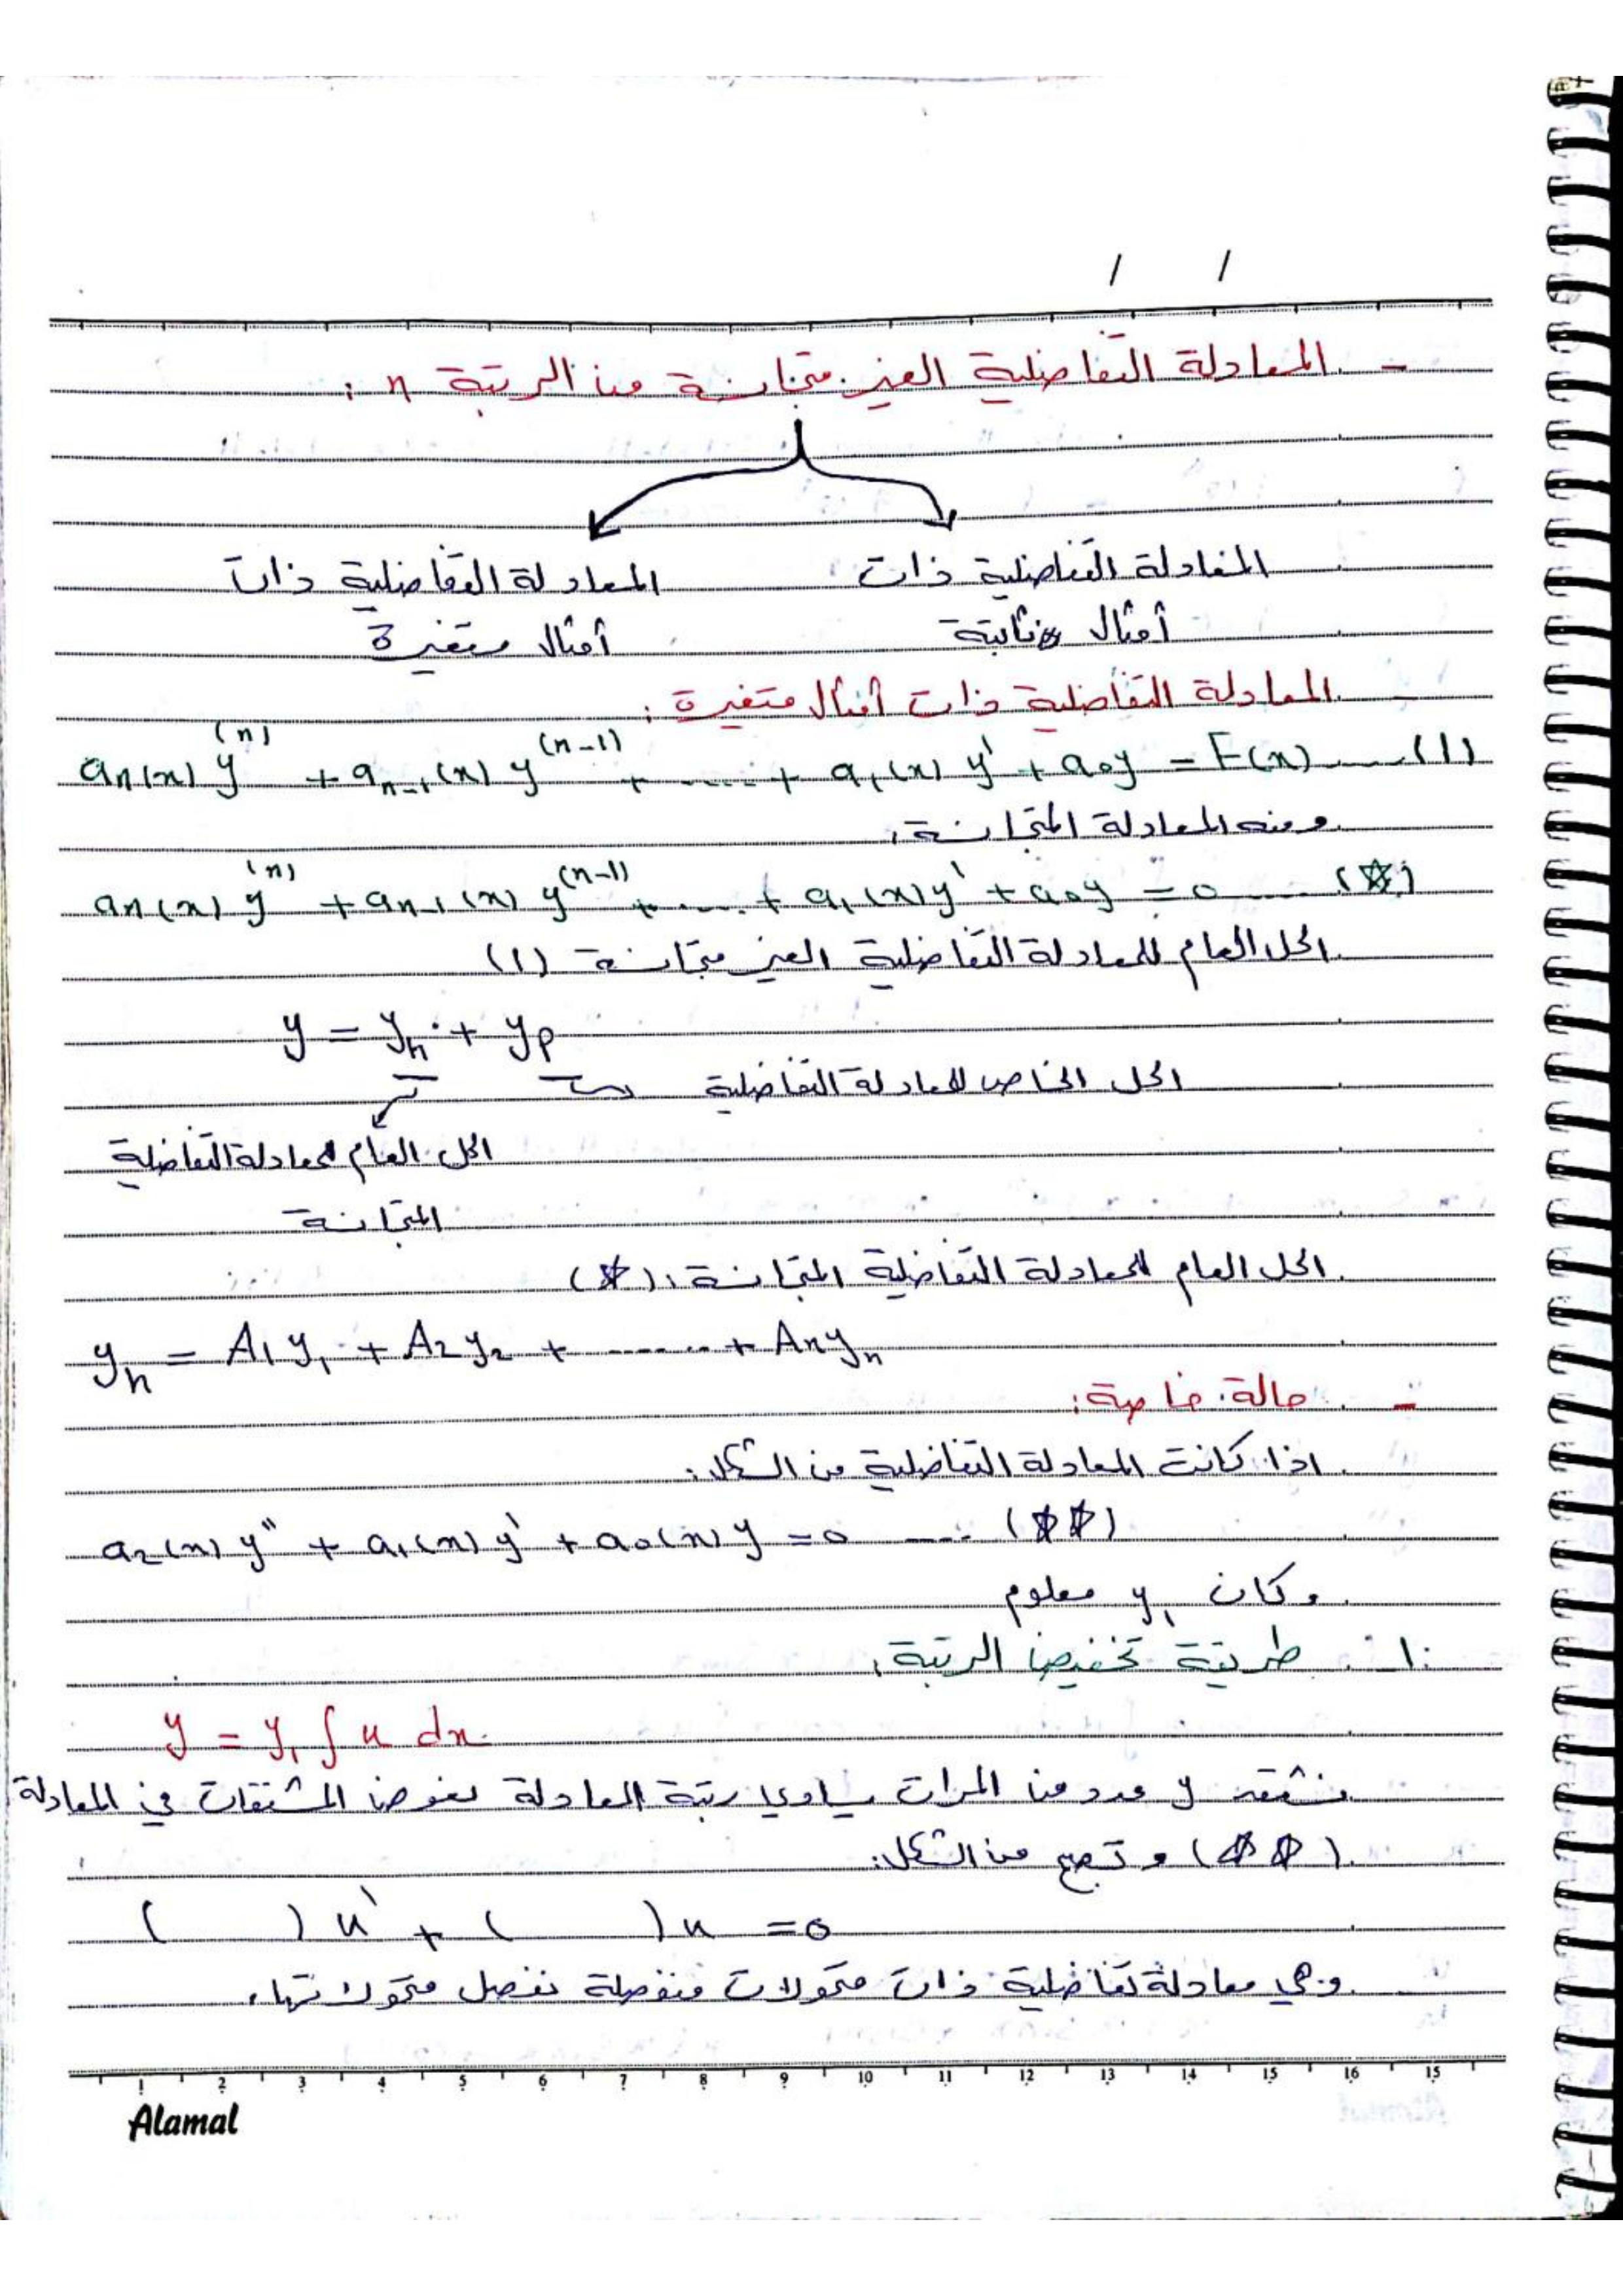 / /
- المعادلة التفاضلية الغير متجانسة من الرتبة n :
المعادلة التفاضلية ذات المعادلة التفاضلية ذات
أمثال ثابتة أمثال متغيرة
- المعادلة التفاضلية ذات أمثال متغيرة :
an(x) y^(n) + a_n-1(x) y^(n-1) + ..... + a1(x) y' + a0y = F(x) .... (1)
ومنه المعادلة المتجانسة:
an(x) y^(n) + an-1(x) y^(n-1) + .... + a1(x)y' + a0y = 0 .... (☆)
الحل العام للمعادلة التفاضلية الغير متجانسة (1)
y = yh + yp
الحل الخاص للمعادلة التفاضلية
الحل العام للمعادلة التفاضلية
المتجانسة
الحل العام للمعادلة التفاضلية المتجانسة: (☆)
yh = A1y1 + A2y2 + ...... + Anyn
- حالة خاصة:
اذا كانت المعادلة التفاضلية من الشكل:
a2(x) y'' + a1(x) y' + a0(x) y = 0 .... (☆☆)
وكان y1 معلوم
1. طريقة تخفيض الرتبة:
y = y1 ∫ u dx
نشتق y عدد من المرات يساوي رتبة المعادلة نعوض المشتقات في المعادلة
(☆☆) و تصبح من الشكل:
( ) u' + ( ) u = 0
وهي معادلة تفاضلية ذات متحولات منفصلة نفصل متحولاتها.
1 2 3 4 5 6 7 8 9 10 11 12 13 14 15 16 15
Alamal